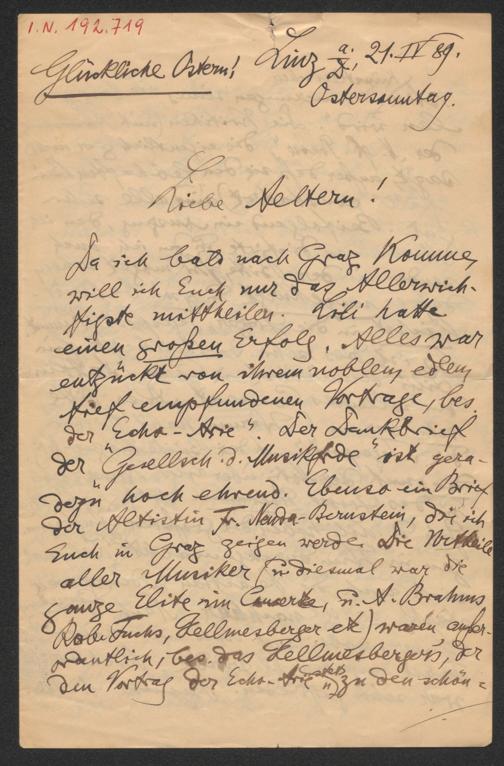 I.N. 192.719
Glückliche Ostern! Linz a. D., 21. IV 89.
Ostersonntag.
Liebe Aeltern!
Da ich bald nach Graz komme,
will ich Euch nur das Allerwich-
tigste mittheilen. Lili hatte
einen großen Erfolg. Alles war
entzückt von ihrem noblem, edlem
tief empfundenen Vortrage, bes.
der "Echo-Arie". Der Dankbrief
der "Gesellsch. d. Musikfrde" ist gera-
dezu hoch ehrend. Ebenso ein Brief
der Altistin Fr. -Bernstein, die ich
Euch in Graz zeigen werde. Die Urtheile
aller Musiker (u diesmal war die
ganze Elite im Concerte, u. A. Brahms
Rob. Fuchs, Hellmesberger etc) waren außer-
ordentlich, bes. das Hellmesberger's, der
den Vortrag der Echo-Arie zu den schön-